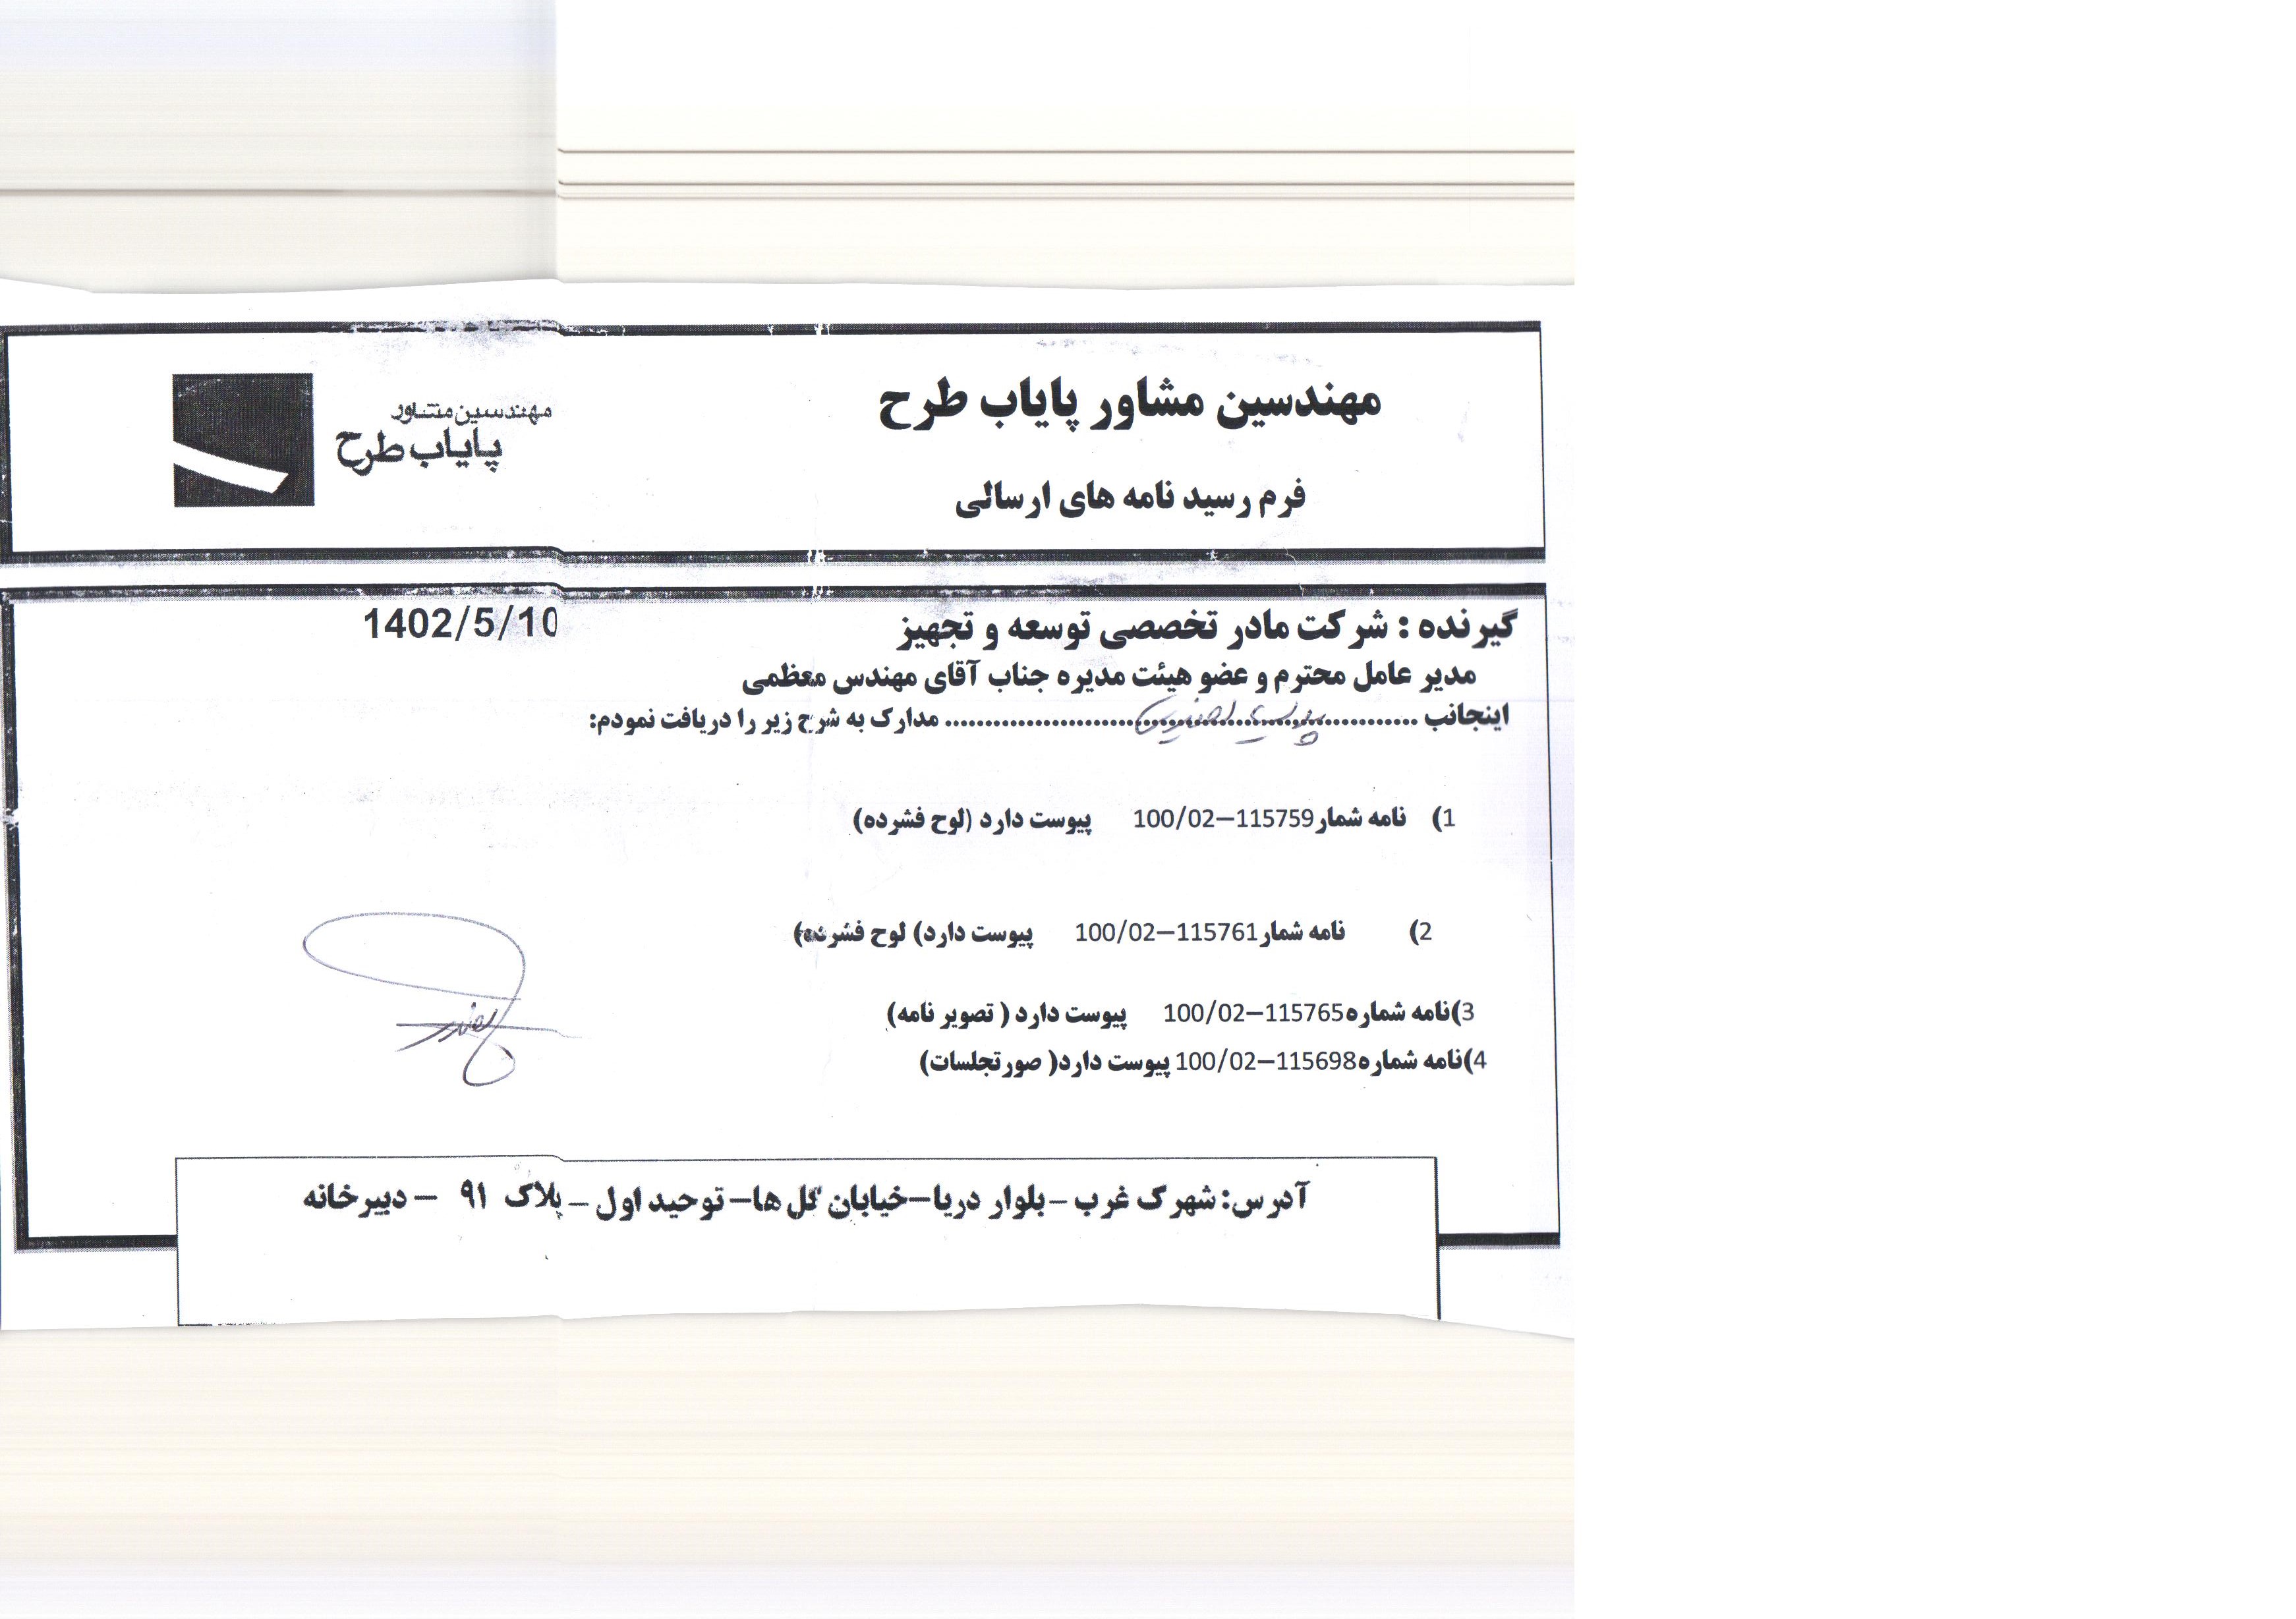 مهندسین مشاور پایاب طرح
مهندسین مشاور
پایاب طرح
فرم رسید نامه های ارسالی
گیرنده : شرکت مادر تخصصی توسعه و تجهیز
1402/5/10
مدیر عامل محترم و عضو هیئت مدیره جناب آقای مهندس معظمی
اینجانب ........................................................... مدارک به شرح زیر را دریافت نمودم:
1) نامه شمار 100/02-115759 پیوست دارد (لوح فشرده)
2) نامه شمار 100/02-115761 پیوست دارد) لوح فشرده)
3)نامه شماره 100/02-115765 پیوست دارد ( تصویر نامه)
4)نامه شماره 100/02-115698 پیوست دارد( صورتجلسات)
آدرس: شهرک غرب – بلوار دریا–خیابان گل ها– توحید اول – پلاک ۹۱ – دبیرخانه